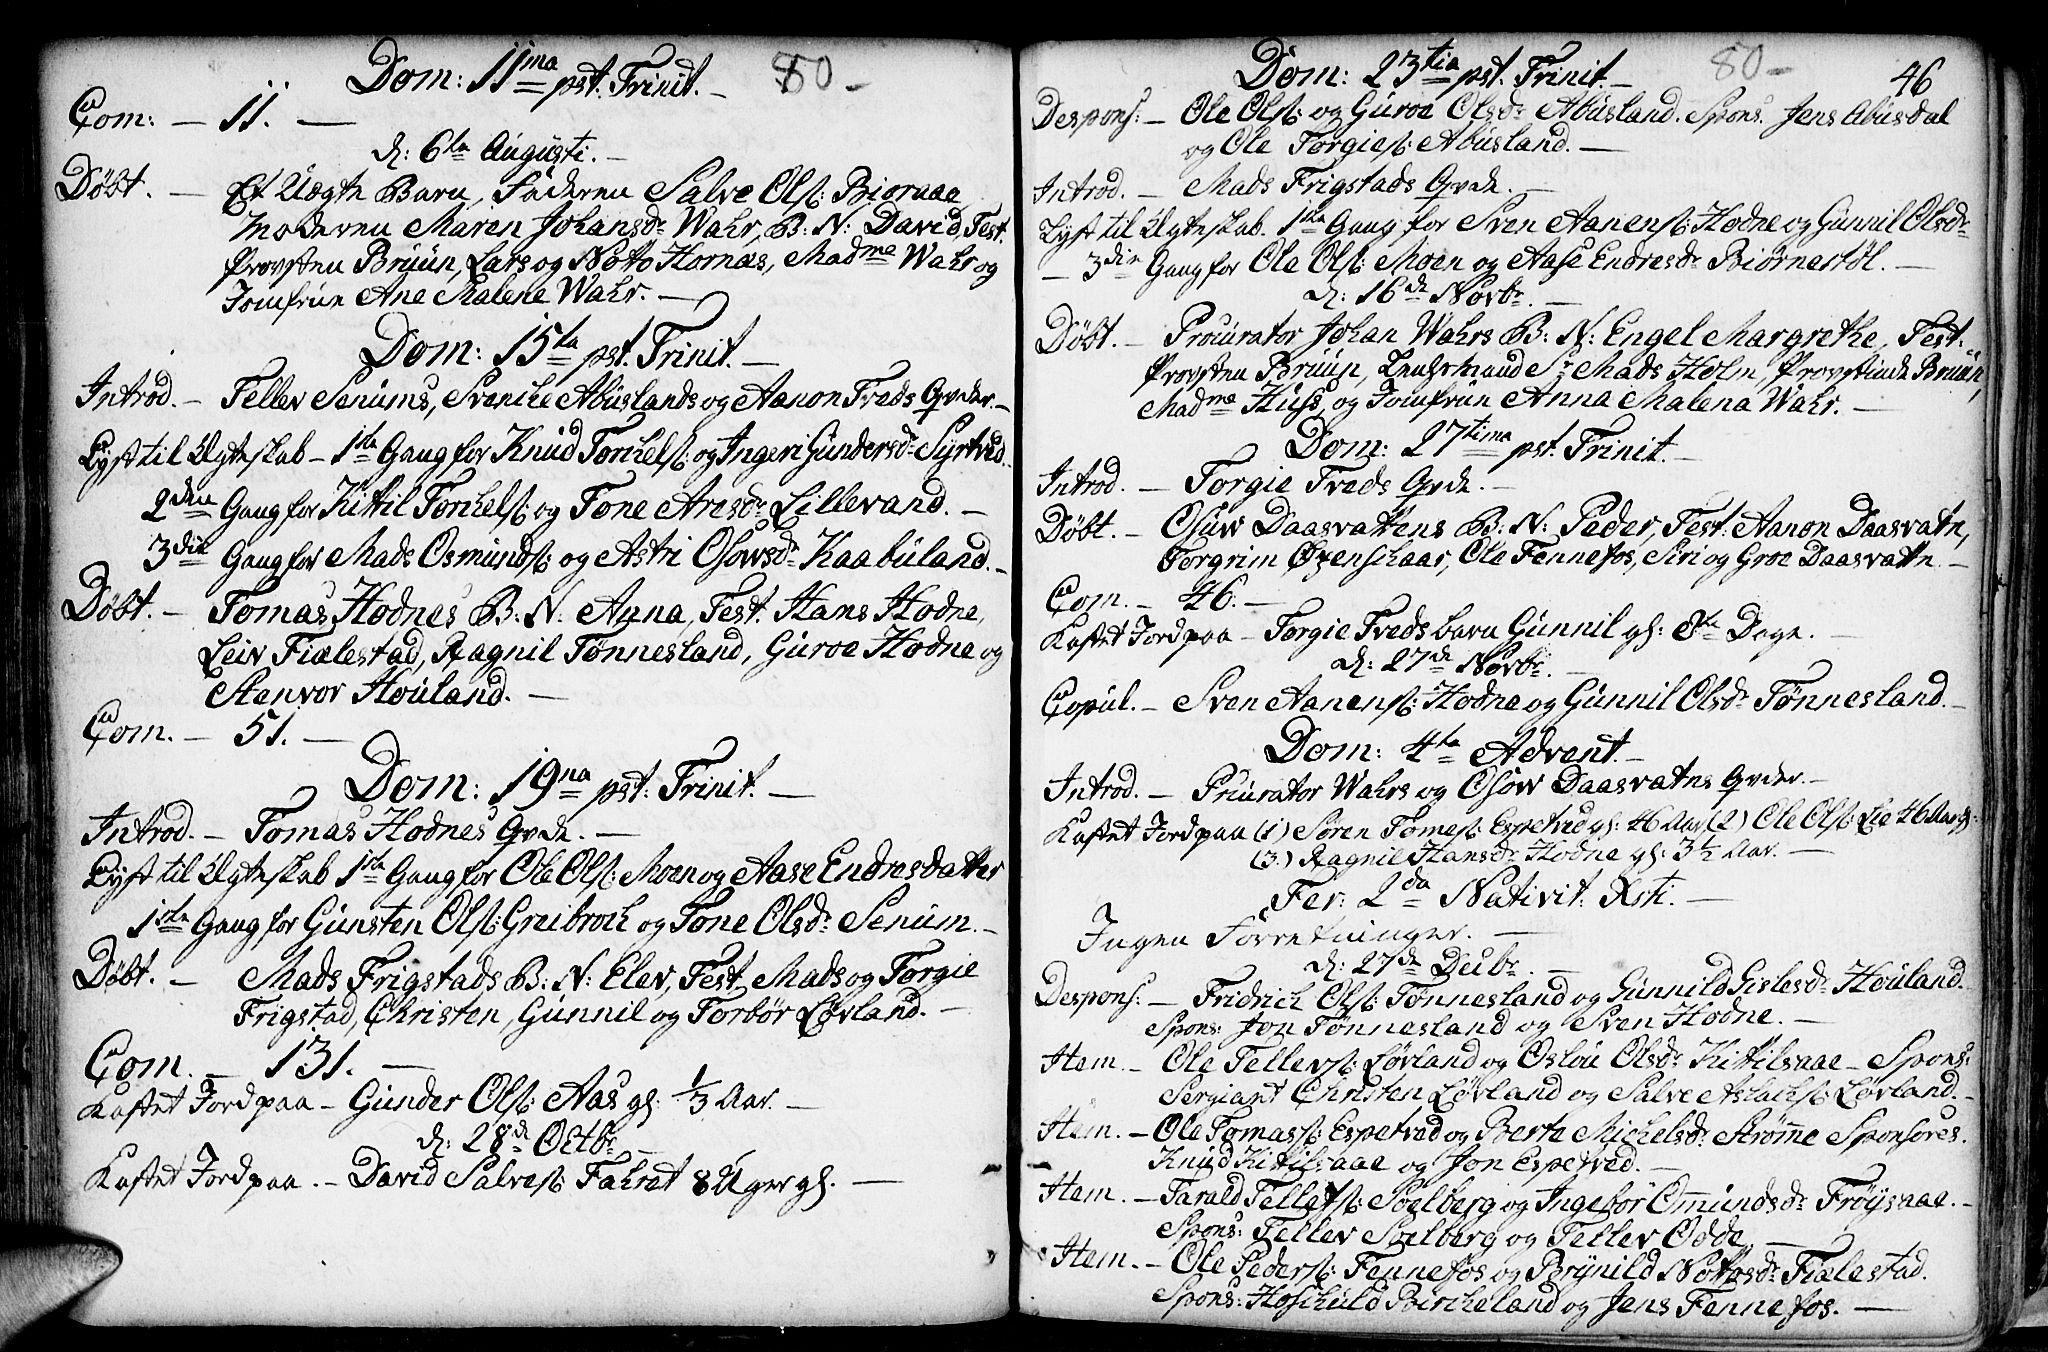 Dom: 11ma pst. Trinit. – 80 –
Com: – 11. –
d: 6te Augusti. –
Döbt. – Et Uægte Barn, Faderen Salve Ols: Bioraae,
Moderen Maren Johansdr Wahr, B: N: David, Test.
Provsten Bruun, Lars og Notto Hornæs, Madme Wahr og
Jomfrue Ane Malene Wahr. –
Dom: 15ta pst. Trinit. –
Introd. – Tellev Senums, Svenche Abuslands og Aanon Treds Qvder. –
Lyst til Ægteskab – 1ste Gang for Knud Torchels: og Ingeri Gundersdr Syrtved.
2den Gang for Kittil Torchels: og Tone Aresdr Lillevand. –
3die Gang for Mads Osmunds: og Astri Osowsdr Kaabuland. –
Döbt. – Tomas Hodnes B: N: Anna, Test. Hans Hodne,
Leiv Fiælestad, Ragnil Tönnesland, Guroe Hodne og
Stenvor Houland. –
Com. – 51. –
Dom: 19na pst: Trinit. –
Introd. – Tomas Hodnes Qvde. –
Lyst til Ægteskab 1ste Gang for Ole Ols: Moen og Aase Endresdatter
1ste Gang for Gunsten Ols: Greibroch og Tone Olsdr Senum. –
Döbt. – Mads Frigstads B: N: Elev, Test. Mads og Torgie
Frigstad, Christen, Gunnil og Torbör Lövland. –
Com. – 131. –
Kastet Jord paa – Gunder Ols: Aas gl: 1/3 Aar. –
d: 28de Octbr –
Kastet Jord paa. – David Salves: Fahret 8 Uger gl. –
Dom: 23tia pst. Trinit. – 80 – 46
Despons: – Ole Ols: og Guroe Olsdr Abusland. Spons. Jens Abusdal
og Ole Torgies: Abusland. –
Introd. – Mads Frigstads Qvde. –
Lyst til Ægteskab. 1ste Gang for Sven Aanens: Hodne og Gunnil Olsdr
– 3die Gang for Ole Ols: Moen og Aase Endresdr Biörnestöl. –
d: 16de Novbr. –
Döbt. – Procurator Johan Wahrs B: N: Engel Margrethe, Test:
Provsten Bruun, Lensmand Sr Mads Holm, Provstinde Bruun,
Madme Huss, og Jomfrue Anna Malena Wahr. –
Dom: 27tima pst. Trinit. –
Introd. – Torgie Treds Qvde. –
Döbt. – Osuw Daasvattens B: N: Peder, Test: Aanon Daasvatn,
Torgrim Øzenschaar, Ole Fennefos, Siri og Groe Daasvattn. –
Com. – 46. –
Kastet Jord paa – Torgie Treds barn Gunnil gl: Dage. –
d: 27de Novbr. –
Copul. – Sven Aanens: Hodne og Gunnil Olsdr Tönnesland. –
Dom: 4ta Advent. –
Introd. – Prcurator Wahrs og Osow Daasvatns Qvder. –
Kastet Jord paa (1) Sören Tomes: Espetved gl: 46 Aar (2) Ole Ols: Lie 46 Aar gl:
(3.) Ragnil Hansdr Hodne gl: 3½ Aar. –
Fer: 2da Nativit: Xsti. –
Ingen Forretninger. –
d: 27de Decbr. –
Despons: – Fridrich Ols: Tönnesland og Gunnild Gislesdr Houland.
Spons: Jon Tönnesland og Sven Hodne. –
Item. – Ole Tellevs: Lövland og Oslou Olsdr Kittilsaae – Spons:
Sergiant Christen Lövland og Salve Aslachs: Lövland. –
Item. – Ole Tomass: Espetved og Berte Michelsdr Strömme Sponsores.
Knud Kittilsaae og Jon Espetved. –
Item. – Tarald Tellefs: Soelberg og Ingebor Omundsdr Fröÿsaae. –
Spons: Tellev Soelberg og Tellev Odde. –
Item. – Ole Peders: Fennefos og Brynild Nottosdr Fiælestad.
Spons: Hoschuld Bircheland og Jens Fennefos. –